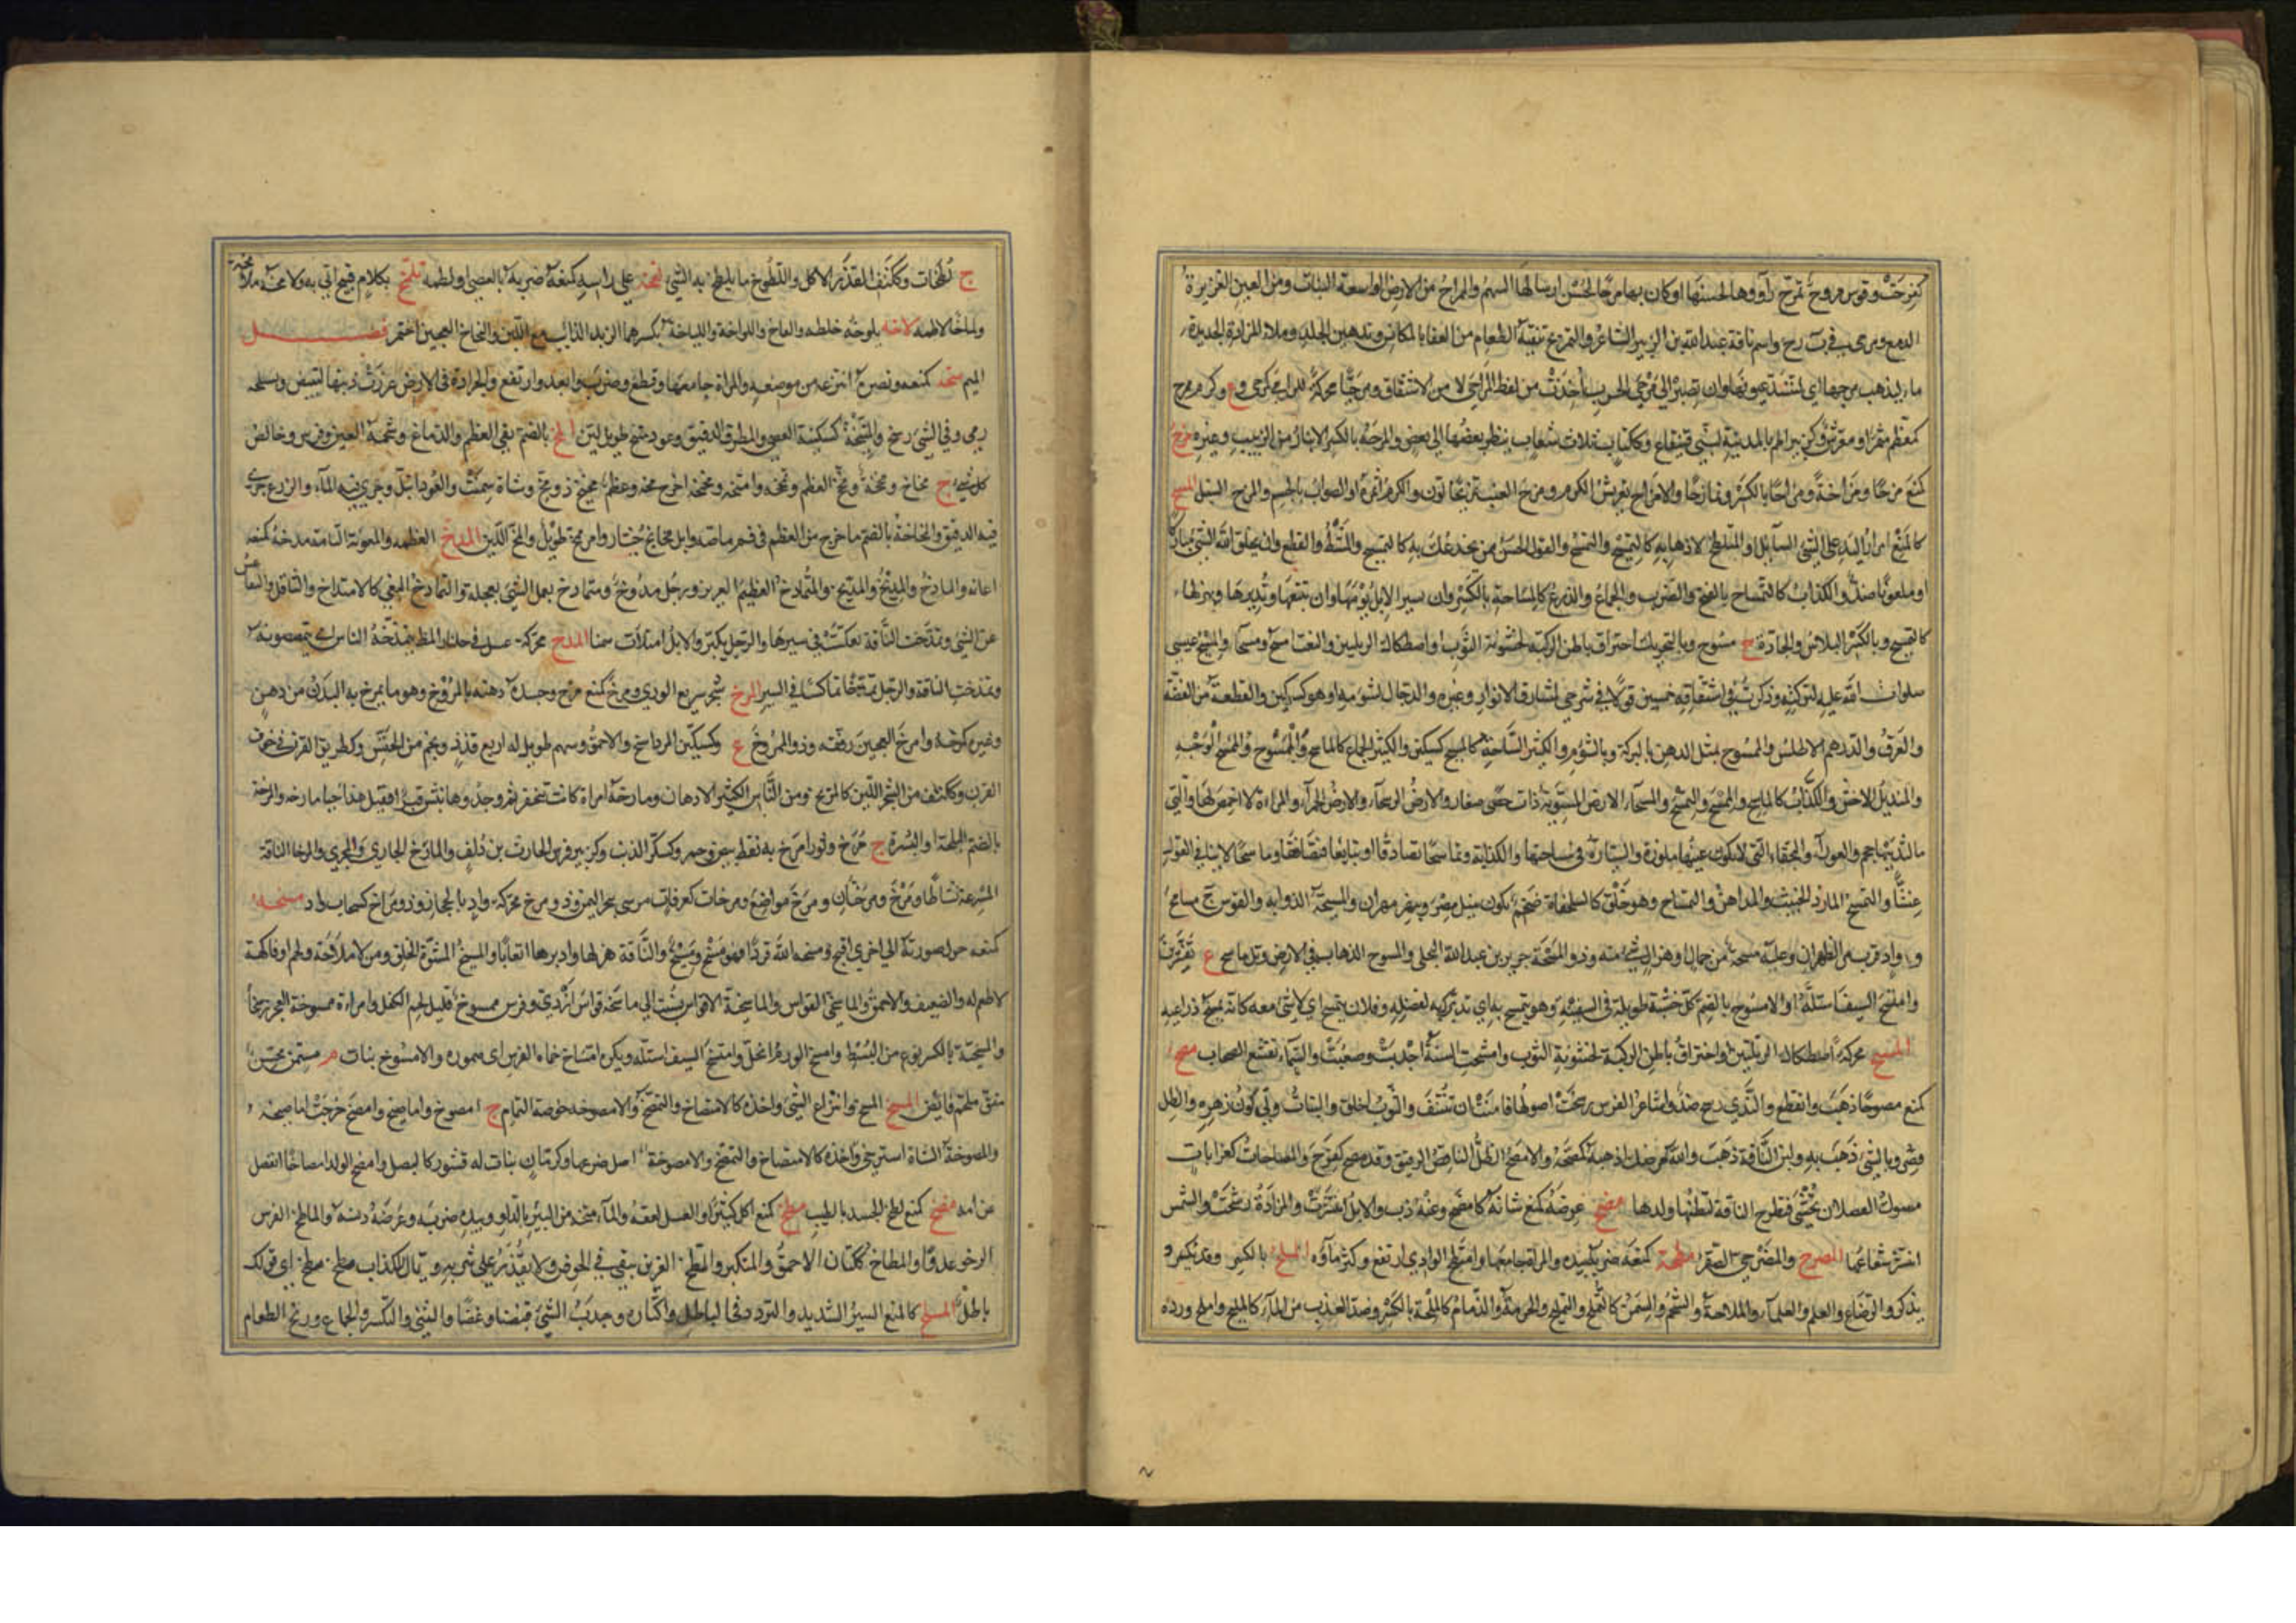 كفرحت وقوس مروح تمرح رآووها لحسنها اوكان بها مرحا لحسن ارسالها السهم والمراح من الارض الواسعة النبات ومن العين الغزيرة
الدمع وبرحى في ب رح واسم ناقة عبدالله بن الزبير الشاعر والتمريح تنقية الطعام من العفا بالمكانس وتدهين الجلد وملاء المزادة الجديدة
ماء ليذهب مرحها اى لتنسد عيونها وان تصير الى مرحى الحرب اخذت من لفظ المرحى لا من الاشتقاق ومرحيا محركة للرامى كرحى وع وكرم ممزح
كمعظم مثمر او معرش وكزبير اطم بالمدينة لبنى قينقاع وككتاب ثلاث شعاب ينظر بعضها الى بعض والمرحة بالكسر الانبار من الزبيب وغيره مزح
كمنع مزحا ومزاحة ومزاحا بالكسر وتمازحا والامزاح تعريش الكرم ومزح العنب تمزيحا لون والكرم اثمر او الصواب بالجيم والمزح السنبل المسح
كالمنع امرار اليد على الشئ السائل او المتلطخ لاذهابه كالتمسيح والتمسح والقول الحسن ممن يخدعك به كالتمسيح والمشط والقطع وان يخلق الله الشئ مباركا
او ملعونا ضد والكذاب كالتمساح بالفتح والضرب والجماع والذرع كالمساحة بالكسر وان سير الابل يومها وان تتعبها وتدبرها وتهزلها
كالتمسيح وبالكسر البلاس والجادة ج مسوح وبالتحريك احتراق باطن الركبة لخشونة الثوب او اصطكاك الربلتين والنعت امسح ومسحآ والمسيح عيسى
صلوات الله عليه لبركته وذكرت في اشتقاقه خمسين قولا في شرحى لمشارق الانوار وغيره والدجال لشومه او هو كسكين والقطعة من الفضة
والعرق والدرهم الاطلس والممسوح بمثل الدهن بالبركة وبالشؤم والكثير السياحة كالمسيح كسكين والكثير الجماع كالماسح والممسوح الوجه
والمنديل الاخشن والكذاب كالماسح والممسح والتمسح والمسحآء الارض المستوية ذات حصى صغار والارض الرسحآء والارض الحمرآء والمراءة لا اخمص لها والتي
ما لثدييها حجم والعورآء والبخقاء التي لا تكون عينها ملوزة والسيارة في سياحتها والكذابة وتماسحا تصادقا او تبايعا فتصافقا وماسحا لاينا في القول
غشا والتمسح المارد الخبيث والمداهن والتمساح وهو خلق كالسلحفاة ضخم يكون بنيل مصر وبنهر مهران والمسيحة الذوابة والقوس ج مسايح
وواد قرب مر الظهران وعليه مسحة من جمال او هزال شئ منه وذو المسحة جرير بن عبدالله البجلى والمسوح الذهاب في الارض وتل ماسح ع بقنسرين
وامتسح السيف استله والامسوح بالضم كل خشبة طويلة في السفينة وهو يتمسح به اى يتبرك به لفضله وفلان يتمسح اى لا شئ معه كانه يمسح ذراعيه
المشح محركة اصطكاك الربلتين او احتراق باطن الركبة لخشونة الثوب وامشحت السنة اجدبت وصعبت والسماء تقشع السحاب مصح
كمنع مصوحا ذهب وانقطع والثدي رشح ضد واشاعر الفرس رسخت اصولها فامنت ان تنتف والثوب اخلق والنبات ولى لون زهره والظل
قصر وبالشئ ذهب به ولبن الناقة ذهب والله مرضك اذهبه كمصحه والامصح الظل الناقص الرقيق وقد مصح كفرح والمصاحات كغرابات
مسوك الفصلان تحشى فتطرح للناقة لتظنها ولدها مضح عرضه كمنع شانه كامضح وعنه ذب والابل انتشرت والمزادة رشحت والشمس
انتشر شعاعها المضرح والمضرحى الصقر مطحه كمنعه ضربه بيده والمراة جامعها وامتطح الوادي ارتفع وكثر مآؤه الملح بالكسر وقد يذكر
يذكر والرضاع والعلم والعلمآء والملاحة والشحم والسمن كالتملح والتمليح والحرمة والذمام كالملحة بالكسر وضد العذب من المآء كالمليح واملح ورده
ج لطخات وككتف القذر الاكل واللطوخ ما يلطخ به الشئ لفخه على راسه كمنعه ضربه بالعصى او لطمه تلتخ بكلام قبيح اتى به
ولماخا لاطمه لاخه يلوخه خلطه والتاخ واللواخة واللياخة بكسرهما الزبد الذائب مع اللبن والتاخ العجين اختمر فصل
الميم متخه كمنعه ونصره انتزعه من موضعه والمراة جامعها وقطع وضرب وابعد وارتفع والجرادة في الارض غرزت ذنبها لتبيض وبسلحه
رمى وفي الشئ رسخ والمتيخة كسكينة العصى والمطرق الدقيق وعود متيخ طويل لين المخ بالضم نقى العظم والدماغ وشحمة العين وفرس وخالص
كل شئ ج مخاخ ومخخة ومخ العظم وتمخخه وامتخه ومخمخه اخرج مخه وعظم مخيخ ذو مخ وشاة سمنت والعود ابتل وجرى فيه المآء والزرع جرى
فيه الدقيق والمخاخة بالضم ما خرج من العظم في فم ماصه وابل مخايخ خيار وامر ممخ طويل والمخ اللين المدخ العظمة والمعونة التامة مدخه كمنعه
اعانه والمادخ والمديخ والمتمادخ العظيم العزيز ورجل مدوخ ومتمادخ يعمل الشئ بعجلة والتمادخ البغى كالامتداخ والتثاقل والتقاعس
عن الشئ وتمدخت الناقة تعكست في سيرها والرجل تكبر والابل امتلأت سمنا المذخ محركة عسل في جلنار المظ يتمذخه الناس اى يتمصصونه
وتمذخت الناقة والرجل تمذخا تماكسا في السير المرخ شجر سريع الورى ومرخ كمنع مزح وجسده دهنه بالمروخ وهو ما يمرخ به البدن من دهن
وغيره كمرخه وامرخ العجين رققه وذو الممروخ ع وكسكين المرداسنج والاحمق وسهم طويل له اربع قذذ ونجم من الخنس وكطريق القرن في جوف
القرن وككتف من الشجر اللين كالمريخ ومن الناس الكثير الادهان ومارخة امراة كانت تتخفر ثم وجدوها تنبش قبرا فقيل هذا حيا مارخة والمرخة
بالضم البلحة او البسرة ج مرخ وثور امرخ به نقط بيض وحمر وكسكر الذئب وكزبير فرس الحارث بن دلف والمارخ الجارى والمجرى والمرخا الناقة
المسرعة نشاطا ومرخ ومرختان ومرخ مواضع ومرخات كعرفات مرسى ببحر اليمن وذو مرخ محركة واد بالحجاز وذو مراخ كسحاب واد مسخه
كمنعه حول صورته الى اخرى اقبح ومسخه الله قردا فهو مسخ ومسيخ والناقة هزلها وادبرها اتعابا والمسيخ المشوه الخلق ومن لا ملاحة له ولحم او فاكهة
لا طعم له والضعيف والاحمق والماسخى القواس والماسخية الاقواس نسبت الى ماسخة قواس ازدى وفرس ممسوخ قليل لحم الكفل وامراءة ممسوخة العجز رسحا
والمسيخية بالكسر نوع من البسط وامسخ الورم انحل وامتسخ السيف استله ويكره امتساخ حماة الفرس اى ضموره والامسوخ نبات م
المصخ المسخ وانتزاع الشئ واخذه كالامتصاخ والتمصخ والامصوخة خوصة الثمام ج امصوخ واماصيخ وامصخ خرجت اماصيخه
والمصوخة الشاة استرخى اصل ضرعها وكرمان نبات له قشور كالبصل وامصخ الولد امصاخا انفصل
عن امه مضخ كمنع لطخ الجسد بالطيب مطخ كمنع اكل كثيرا والعسل لعقه والمآء متخه من البئر بالدلو وبيده ضربه وعرضه دنسه والماطخ الفرس
الرخو عدوا والمطاخ ككتان الاحمق والمتكبر والمطخ الغرين يبقى في الحوض ولا يقدر على شربه ويقال للكذاب مطخ مطخ اى قولك
باطل الملخ كالمنع السير الشديد والتردد في الباطل واكثاره وجذب الشئ قبضا وعضا والتثنى والتكسر والجماع ورنخ الطعام